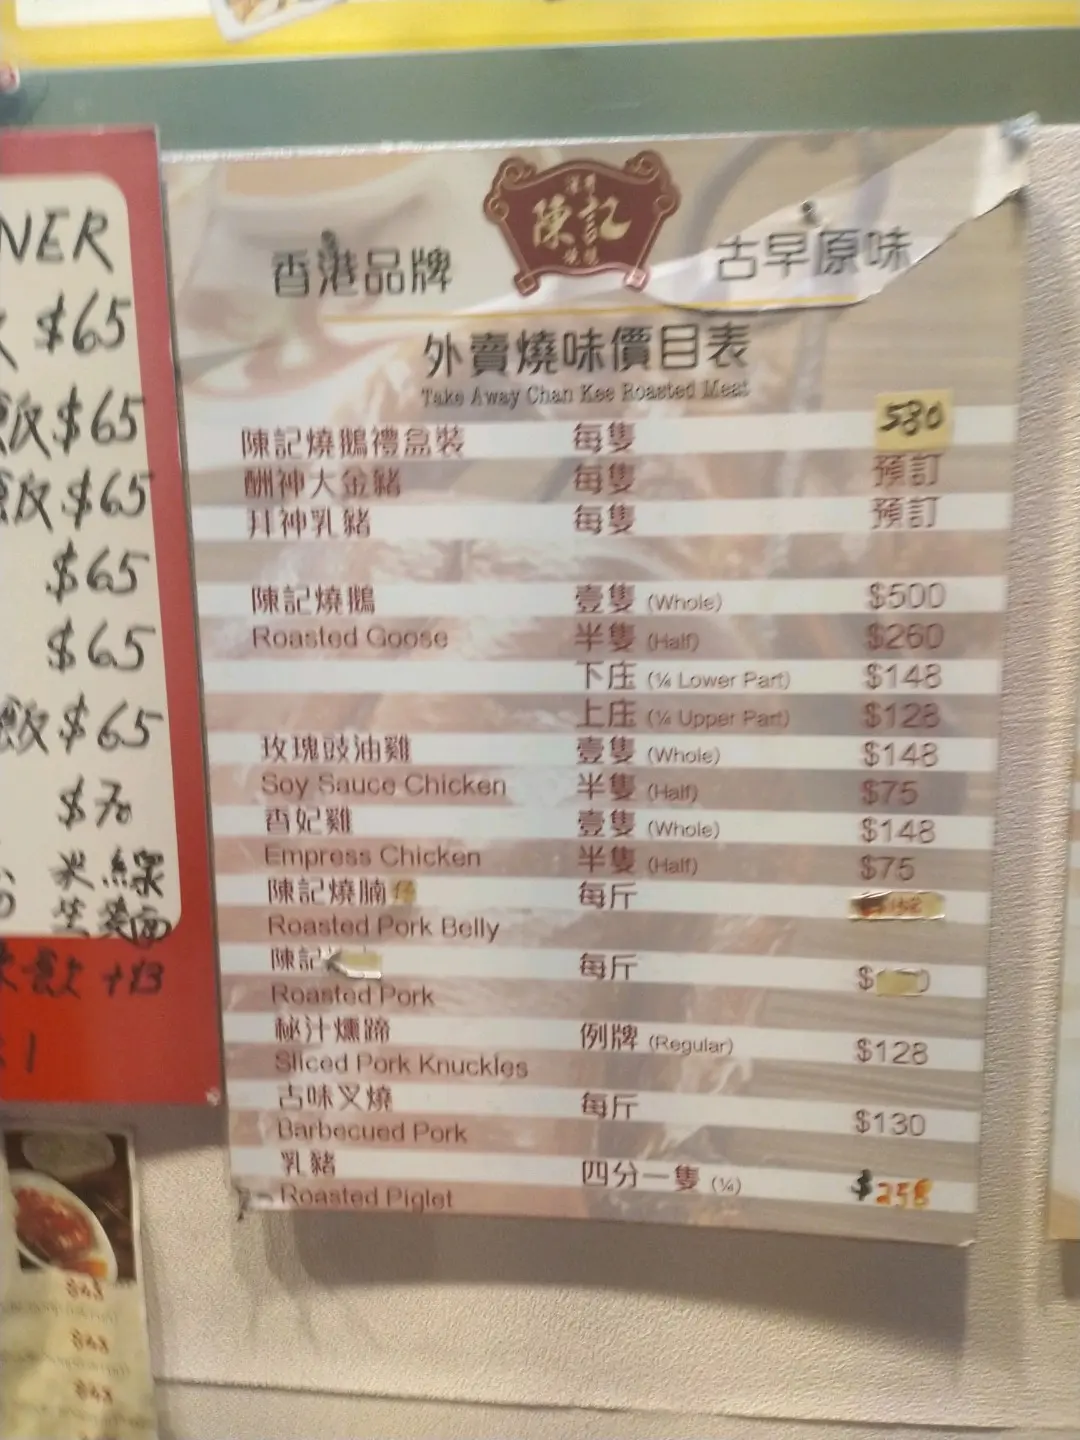 NER
$65
飯$65
飯$65
$65
$65
飯$65
$70
米線
+13
陳記
香港品牌
古早原味
外賣燒味價目表
Take Away Chan Kee Roasted Meat
陳記燒鵝禮盒裝 每隻 580
酬神大金豬 每隻 預訂
拜神乳豬 每隻 預訂
陳記燒鵝 壹隻 (Whole) $500
Roasted Goose 半隻 (Half) $260
下庄 (¼ Lower Part) $148
上庄 (¼ Upper Part) $128
玫瑰豉油雞 壹隻 (Whole) $148
Soy Sauce Chicken 半隻 (Half) $75
香妃雞 壹隻 (Whole) $148
Empress Chicken 半隻 (Half) $75
陳記燒腩仔 每斤
Roasted Pork Belly
陳記 每斤 $
Roasted Pork
秘汁燻蹄 例牌 (Regular) $128
Sliced Pork Knuckles
古味叉燒 每斤 $130
Barbecued Pork
乳豬 四分一隻 (¼) $258
Roasted Piglet